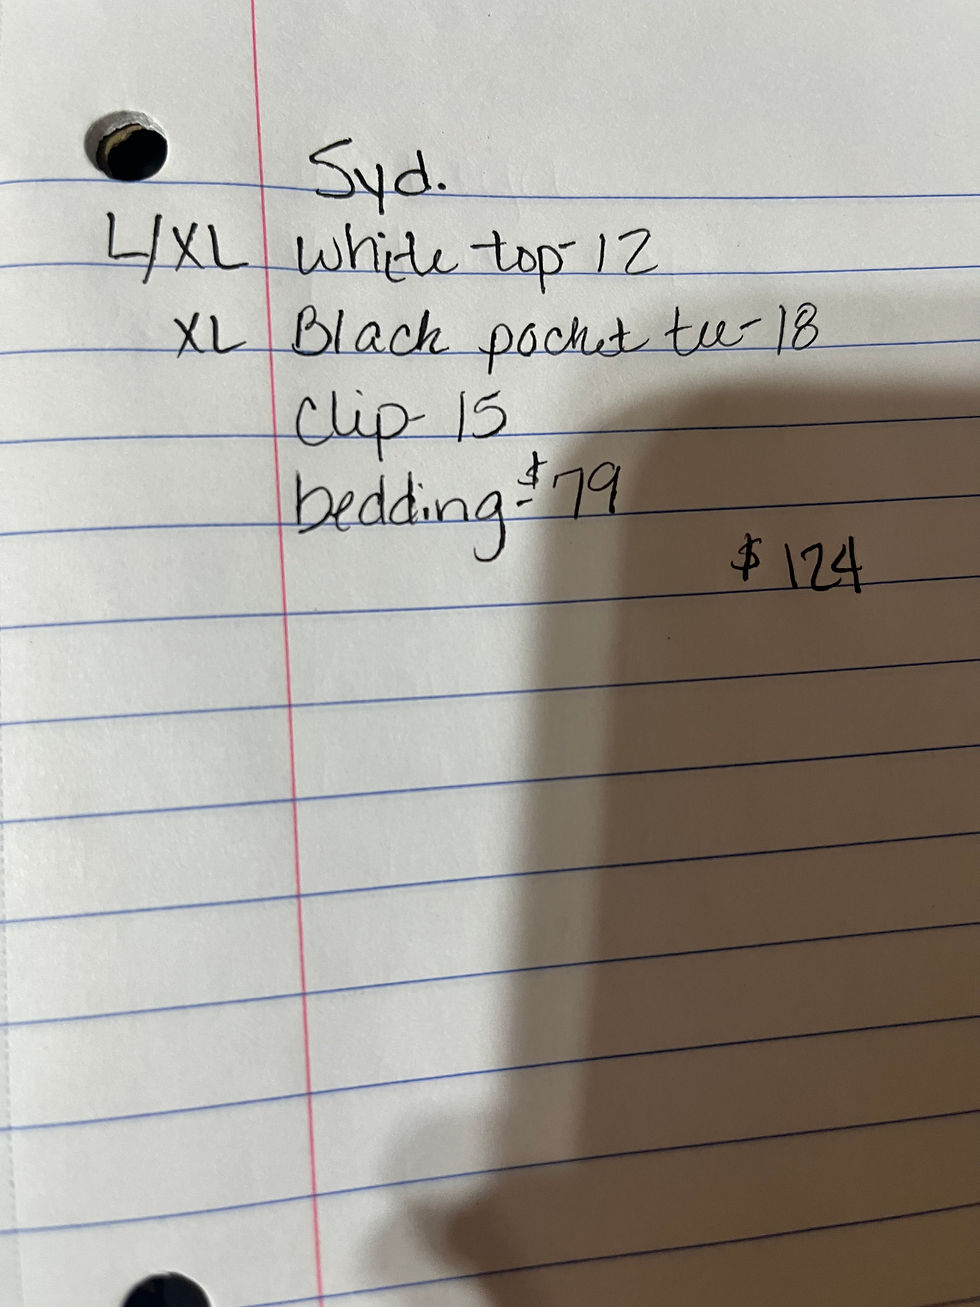 Syd.
L/XL White top - 12
XL Black pocket tee - 18
Clip - 15
bedding - $79
$124